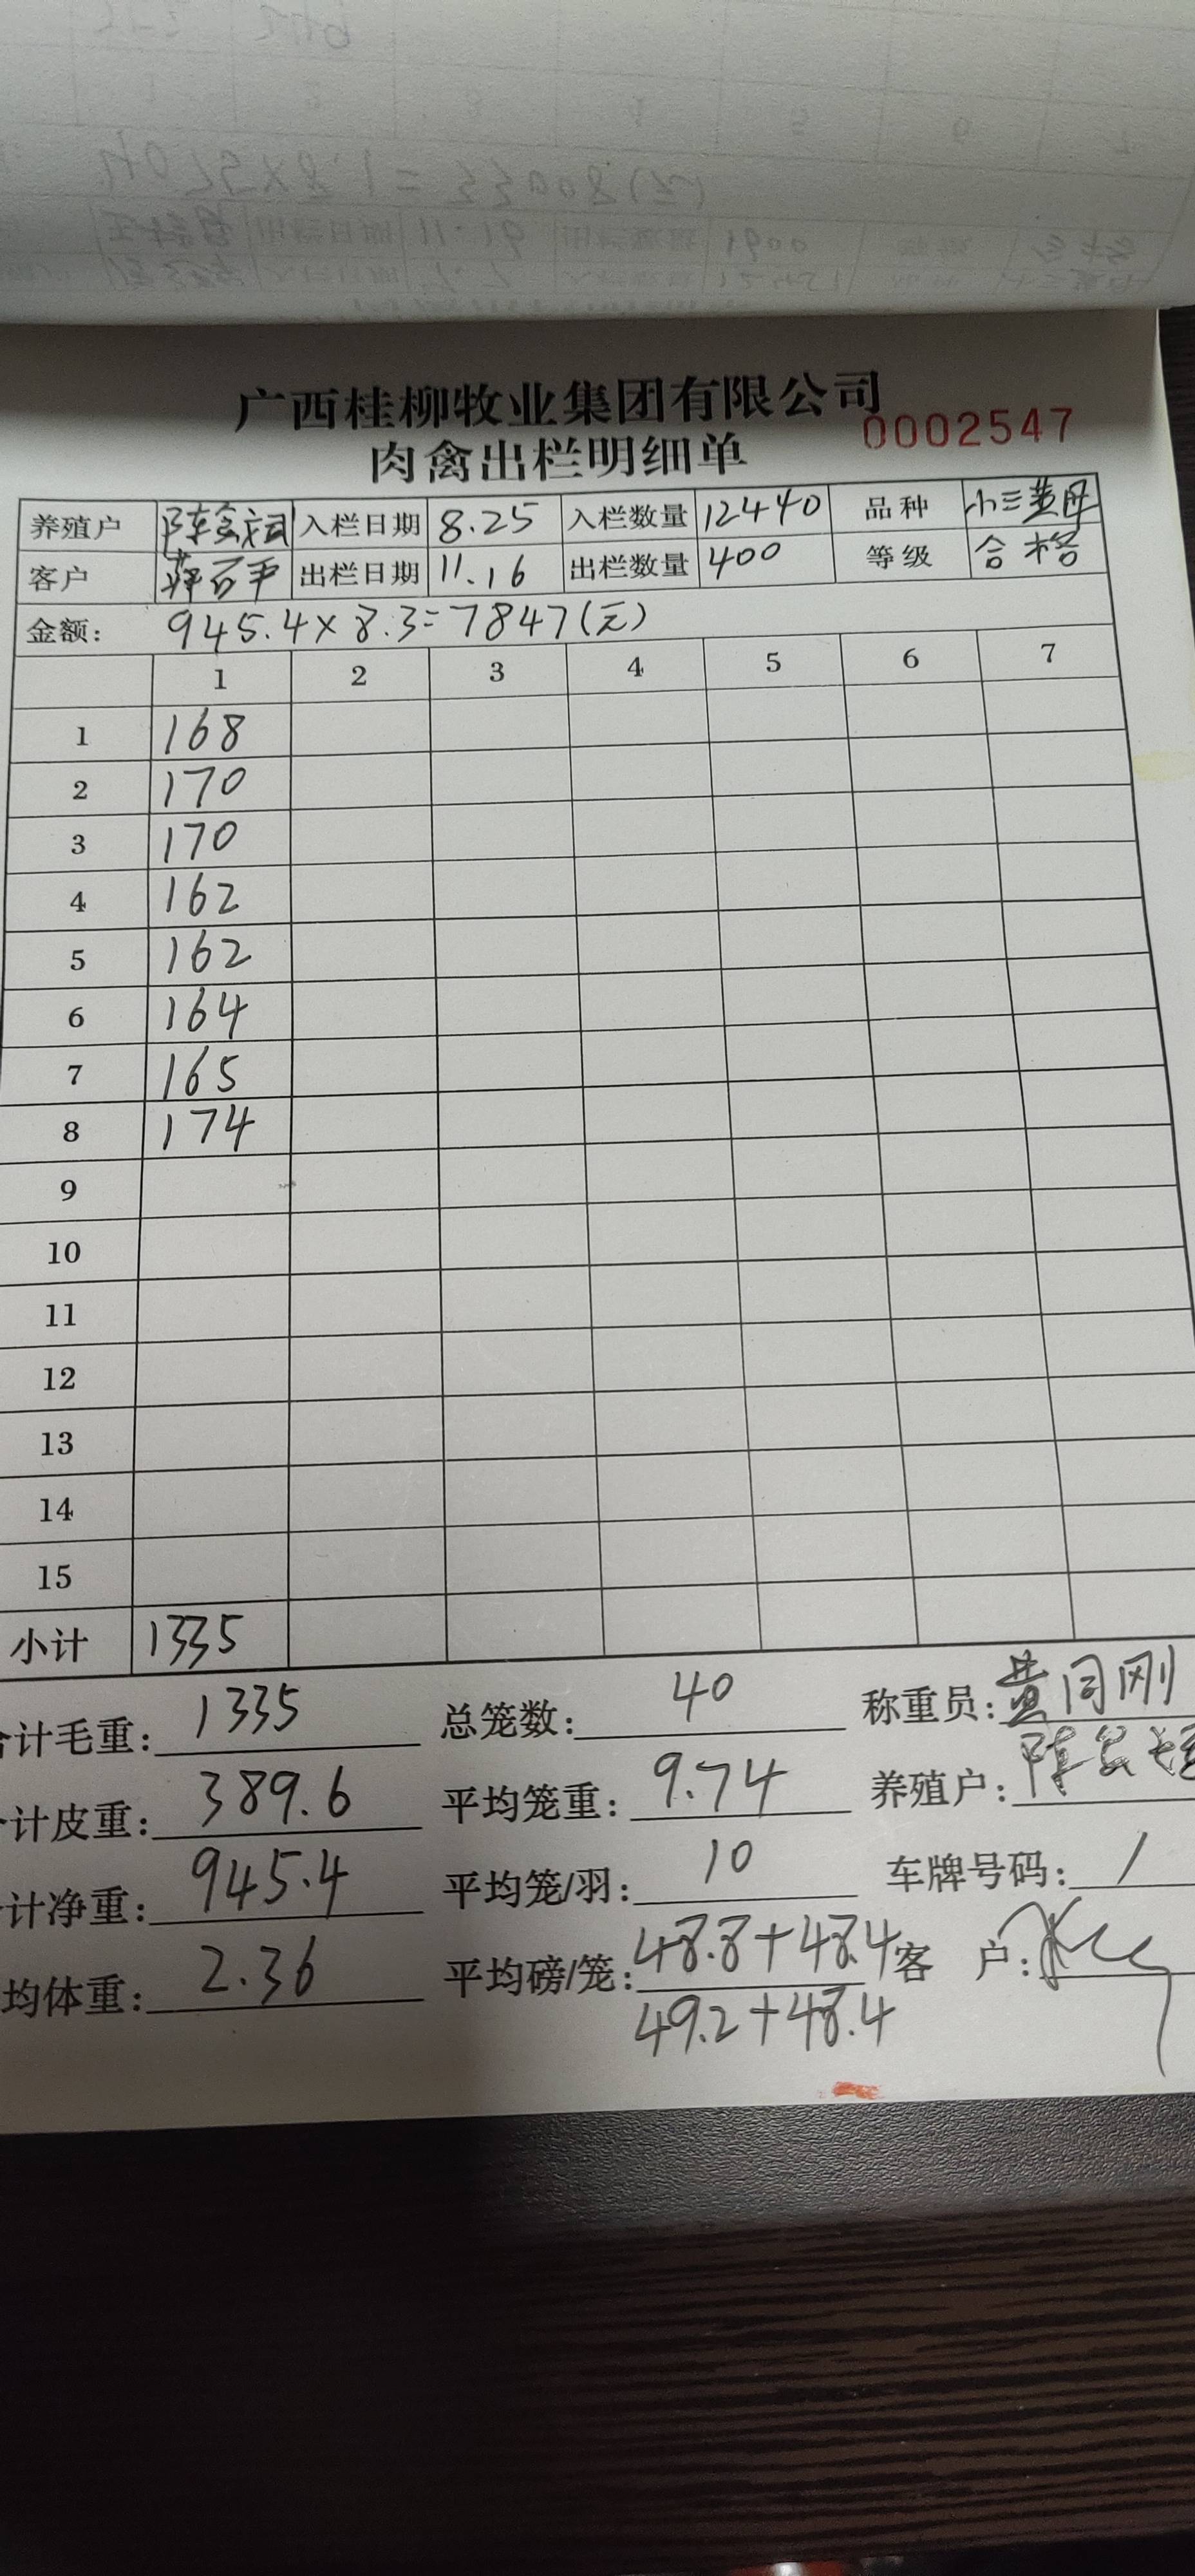 广西桂柳牧业集团有限公司
肉禽出栏明细单 0002547
养殖户 陈 入栏日期 8.25 入栏数量 12440 品种 小三黄母
客户 出栏日期 11.16 出栏数量 400 等级 合格
金额: 945.4×8.3=7847(元)
1 2 3 4 5 6 7
1 168
2 170
3 170
4 162
5 162
6 164
7 165
8 174
9
10
11
12
13
14
15
小计 1335
合计毛重: 1335 总笼数: 40 称重员: 黄同刚
计皮重: 389.6 平均笼重: 9.74 养殖户: 陈
计净重: 945.4 平均笼/羽: 10 车牌号码: /
均体重: 2.36 平均磅/笼: 48.8+48.4 客 户:
49.2+48.4